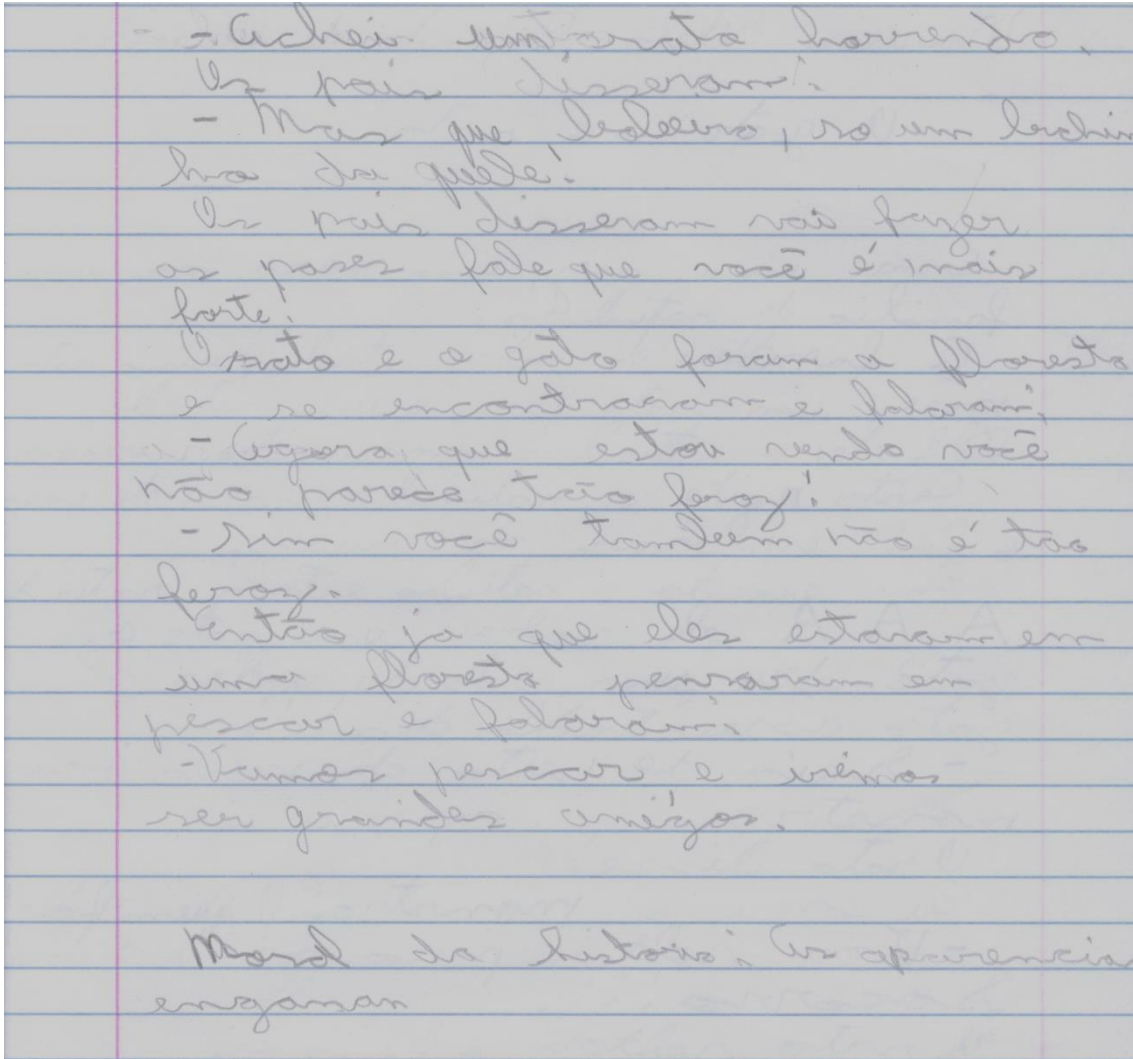 - Achei um rato horrendo.
Os pais disseram:
- Mas que , so um bichin
ho da quele!
Os pais disseram vai fazer
as pases fale que você é mais
forte!
O rato e o gato foram a floresta
e se encontraram e falaram:
- Agora que estou vendo você
não parece tão feroz!
- Sim você tambem não é tão
feroz.
Então ja que eles estavam em
uma floresta pensaram em
pescar e falaram:
- Vamos pescar e iremos
ser grandes amigos.
Moral da história: As aparencias
enganan